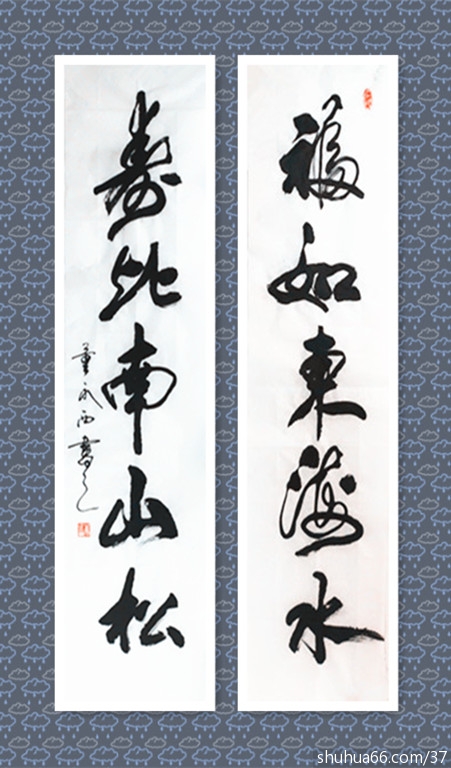 福如东海水
寿比南山松
shuhua66.com/37